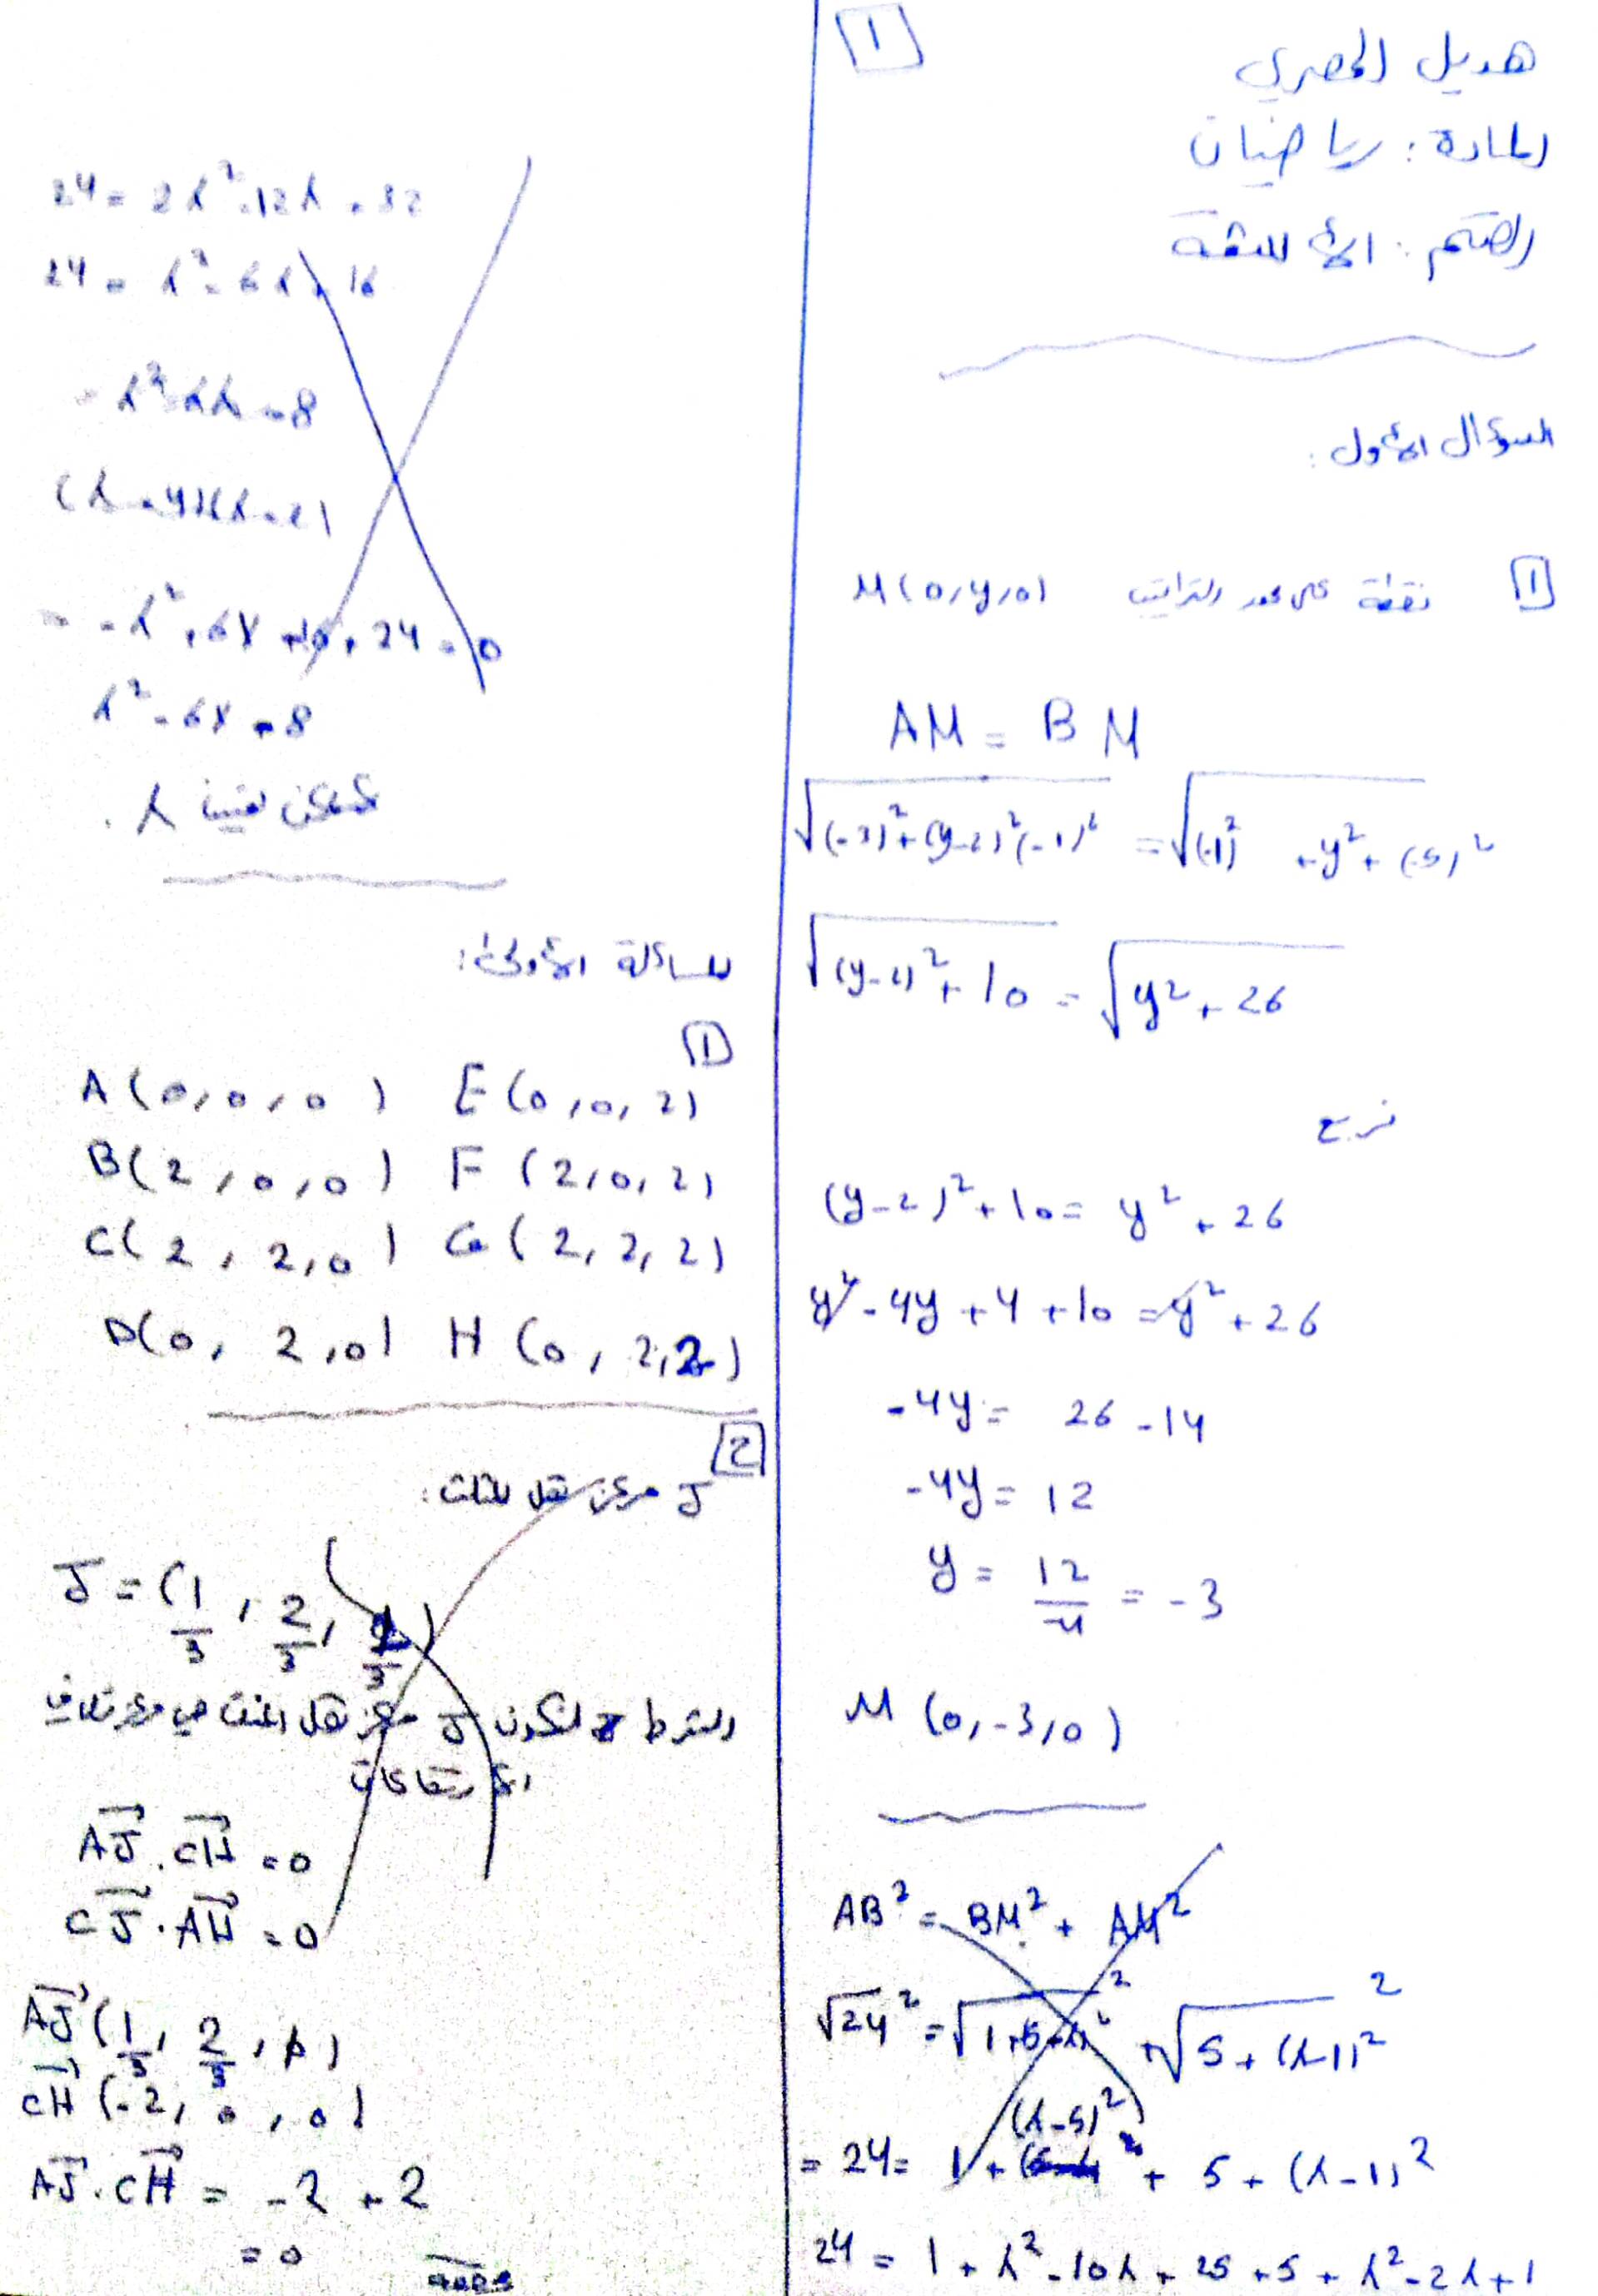 1
هديل المصري
المادة: رياضيات
القسم: الأسئلة
السؤال الأول:
1 نقطة على محور التراتيب M(0,y,0)
AM = BM
√(-3)²+(y-2)²(-1)² = √(-1)² + y² + (-5)²
√(y-2)² + 10 = √y² + 26
نربع
(y-2)² + 10 = y² + 26
y² - 4y + 4 + 10 = y² + 26
-4y = 26 - 14
-4y = 12
y = 12/-4 = -3
M (0, -3, 0)
AB² = BM² + AM²
√24² = √1+ ² + √5 + (λ-1)² ²
(λ-5)²
= 24 = 1 + + 5 + (λ-1)²
24 = 1 + λ² - 10λ + 25 + 5 + λ² - 2λ + 1
24 = 2λ² - 12λ + 32
24 = λ² - 6λ + 16
= λ² 6λ - 8
(λ - 4)(λ - 2)
= -λ² + 6λ + 24 = 0
λ² - 6λ + 8
λ.
المسألة الأولى:
1
A(0,0,0) E(0,0,2)
B(2,0,0) F(2,0,2)
C(2,2,0) G(2,2,2)
D(0,2,0) H(0,2,2)
2
J مركز ثقل المثلث:
J = (1/3, 2/3, /3)
الشرط لتكون J مركز ثقل المثلث هي مركز تلاقي
الارتفاعات
AJ . CH = 0
CJ . AH = 0
AJ (1/3, 2/3, )
CH (-2, 0, 0)
AJ . CH = -2 + 2
= 0